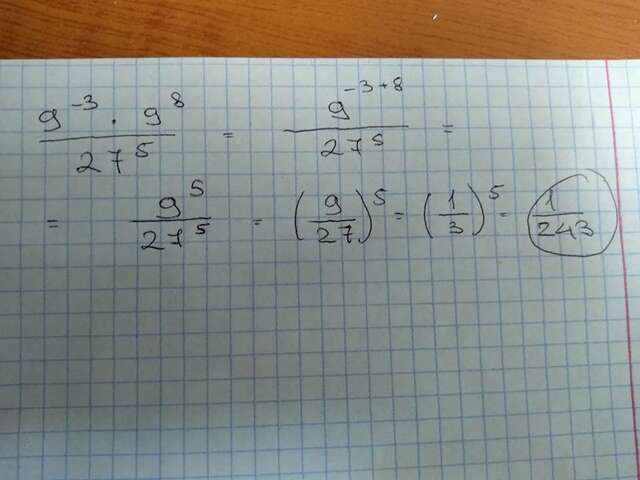 9^-3 · 9^8 / 27^5 = 9^-3+8 / 27^5 =
= 9^5 / 27^5 = (9/27)^5 = (1/3)^5 = 1/243